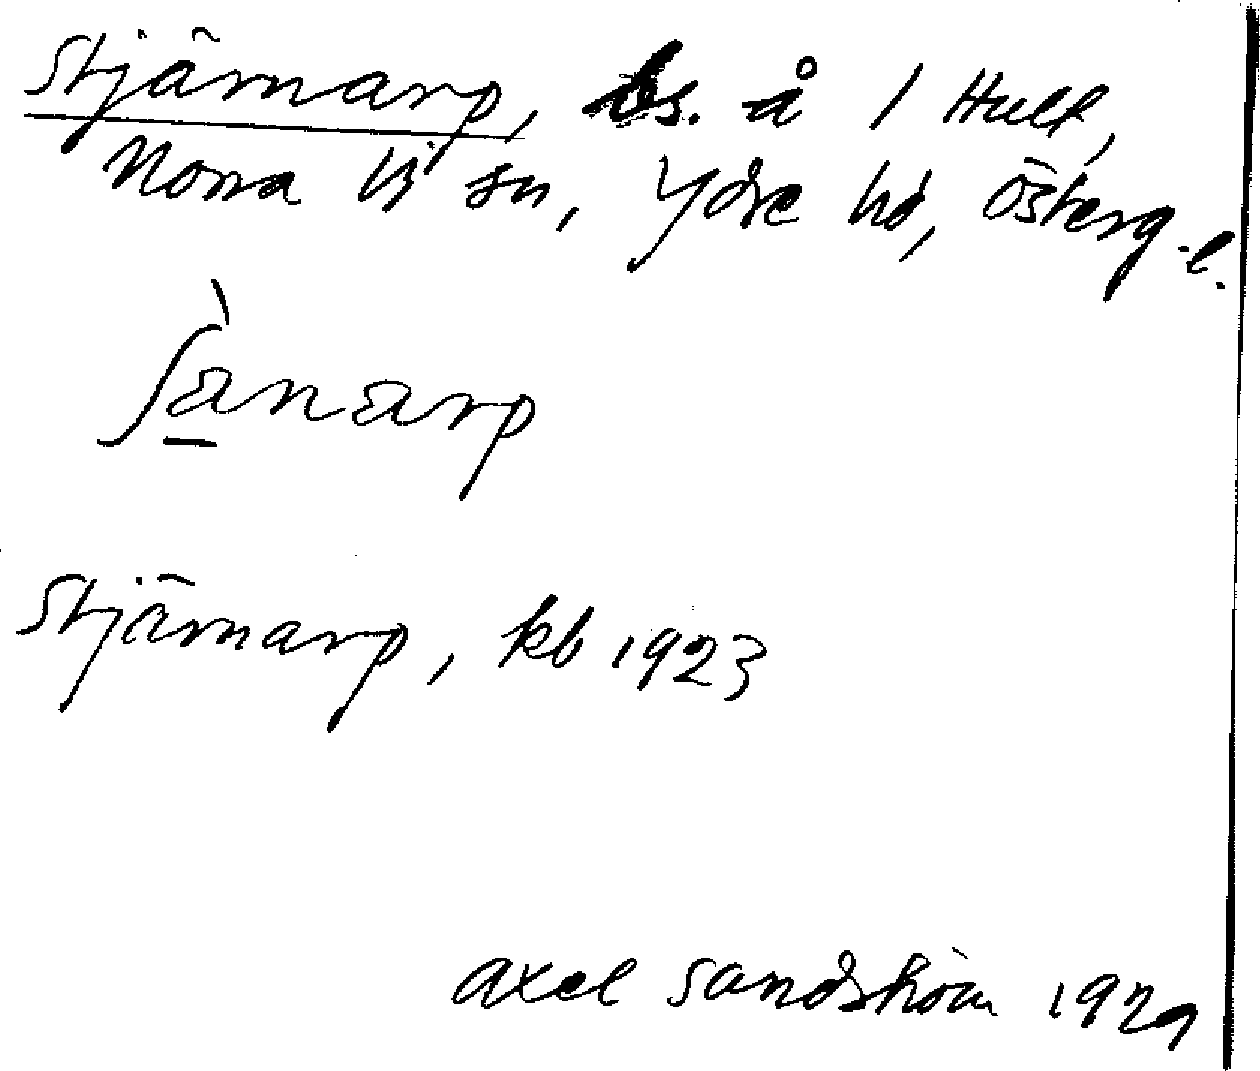 Stjärnarp, ls. å 1 Hult,
Norra Vi sn, Ydre hd, Österg. l.
ʃànarp
Stjärnarp, kb 1923
Axel Sandström 1929